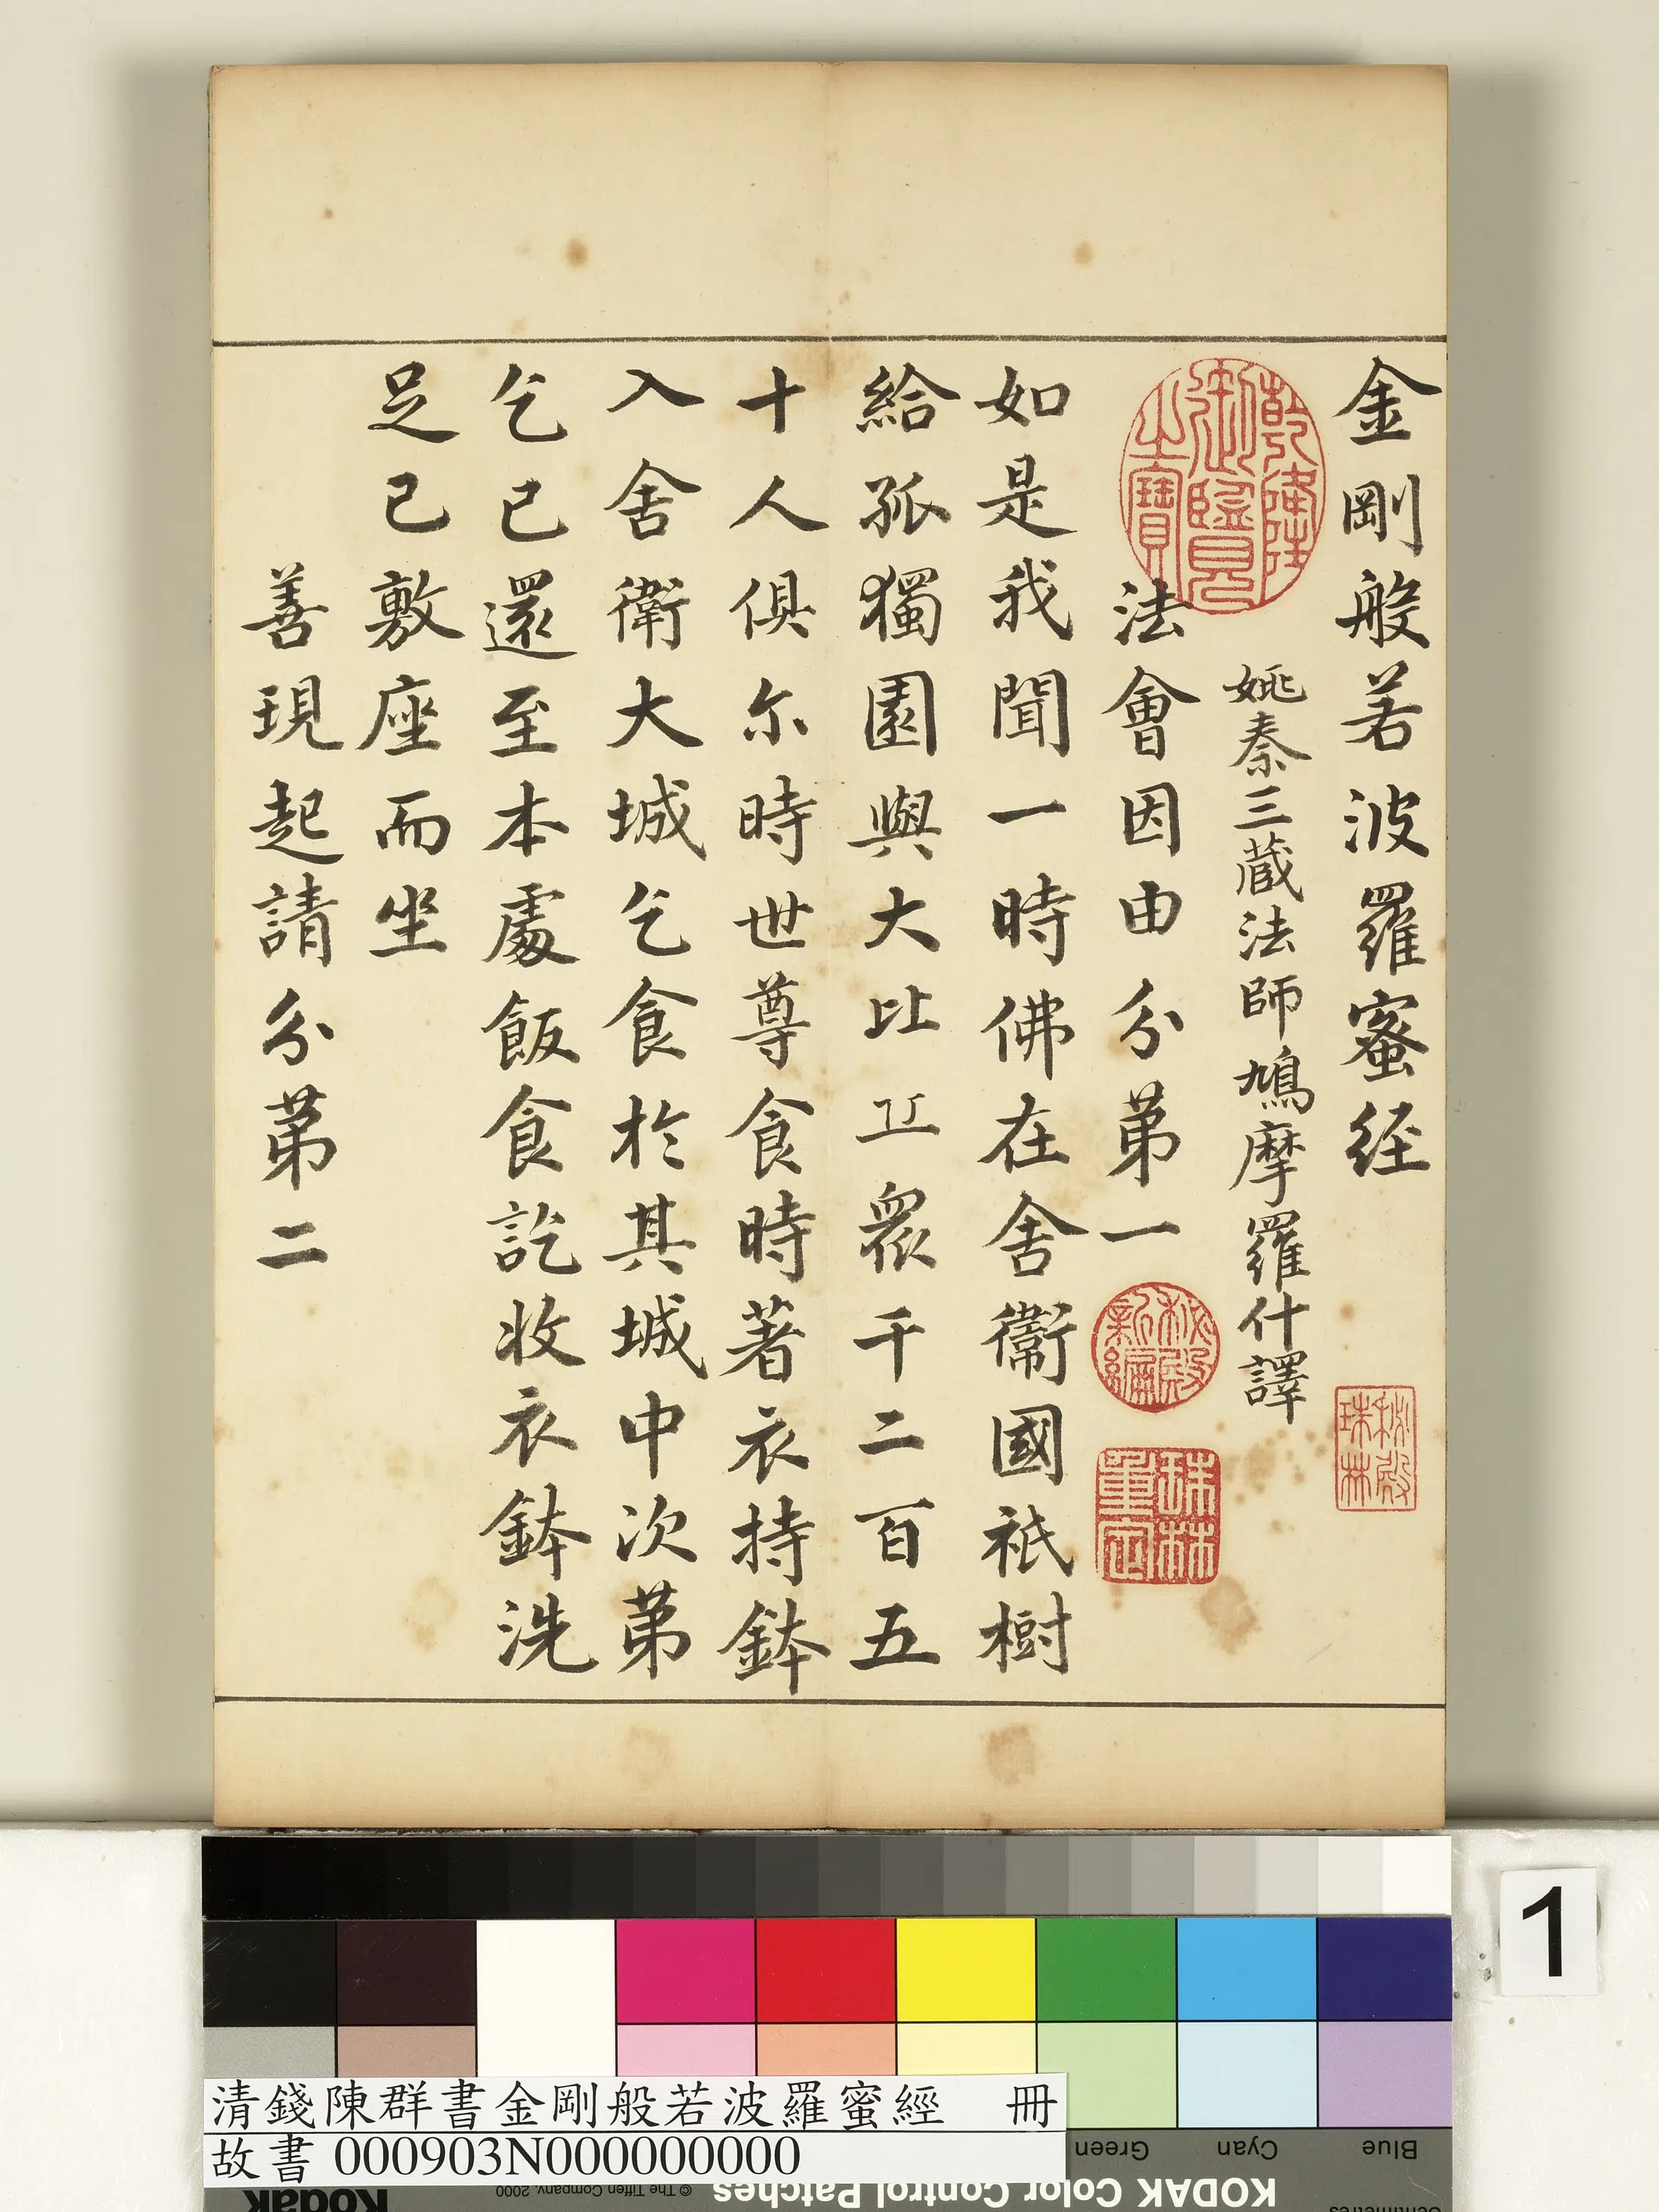 金剛般若波羅蜜経
姚秦三蔵法師鳩摩羅什譯
法會因由分第一
如是我聞一時佛在舍衛國祇樹
給孤獨園與大比丘眾千二百五
十人俱尔時世尊食時著衣持鉢
入舍衛大城乞食於其城中次第
乞已還至本處飯食訖收衣鉢洗
足已敷座而坐
善現起請分第二
乾隆御覽之寶
秘殿新編
珠林重定
秘殿珠林
1
清錢陳群書金剛般若波羅蜜經 冊
故書 000903N000000000
Green
Cyan
Blue
KODAK Color Control Patches
© The Tiffen Company, 2000
Kodak
Centimetres